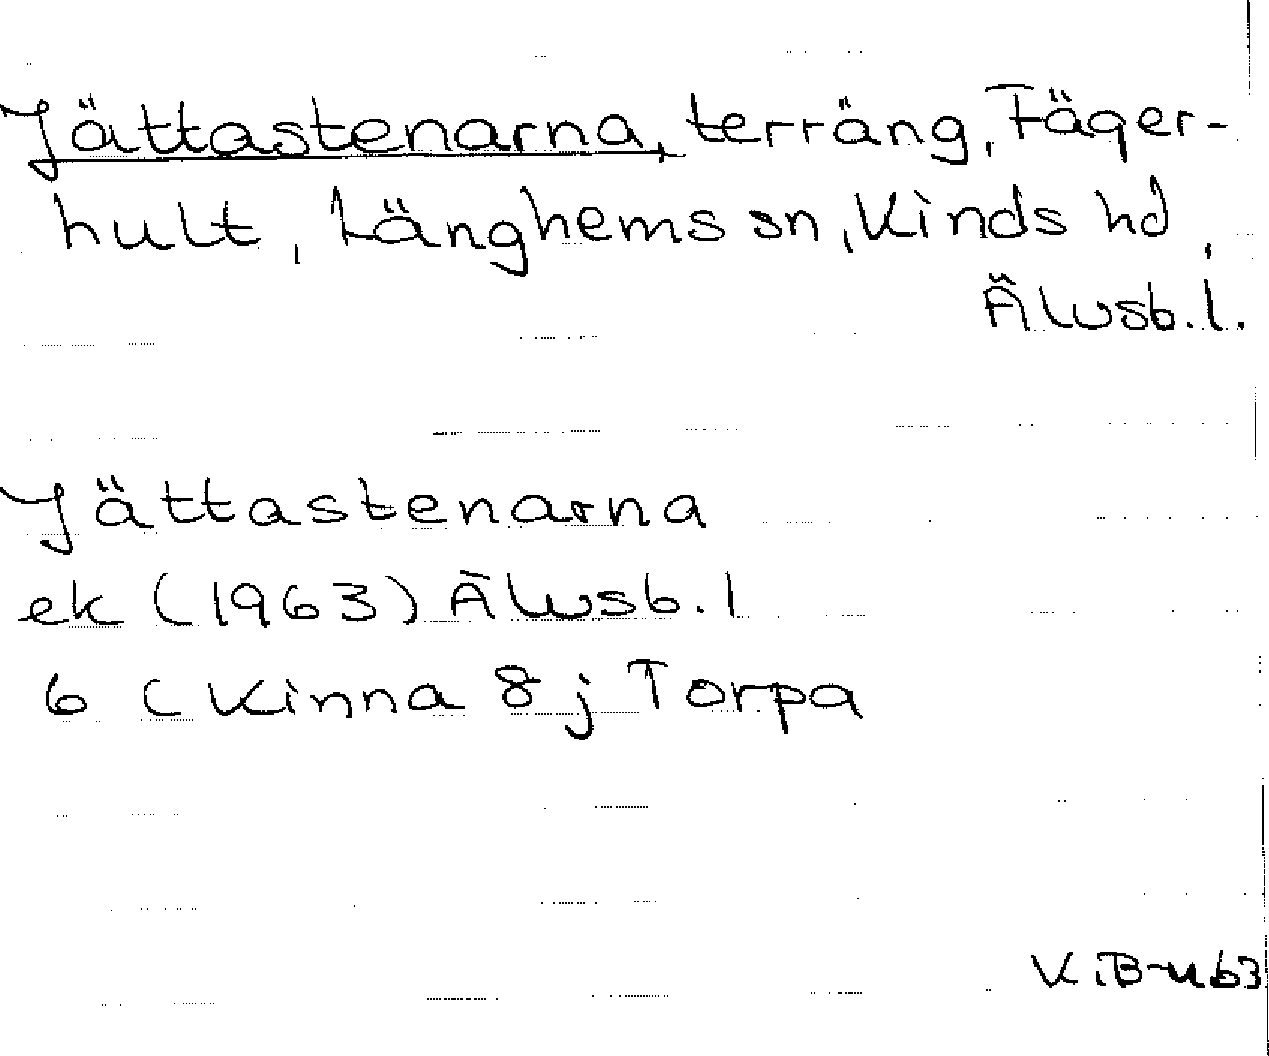 Jättastenarna, terräng, Fäger-
hult, Länghems sn, Kinds hd,
Älvsb. l.
Jättastenarna
ek (1963) Älvsb. l
6 C Kinna 8 j Torpa